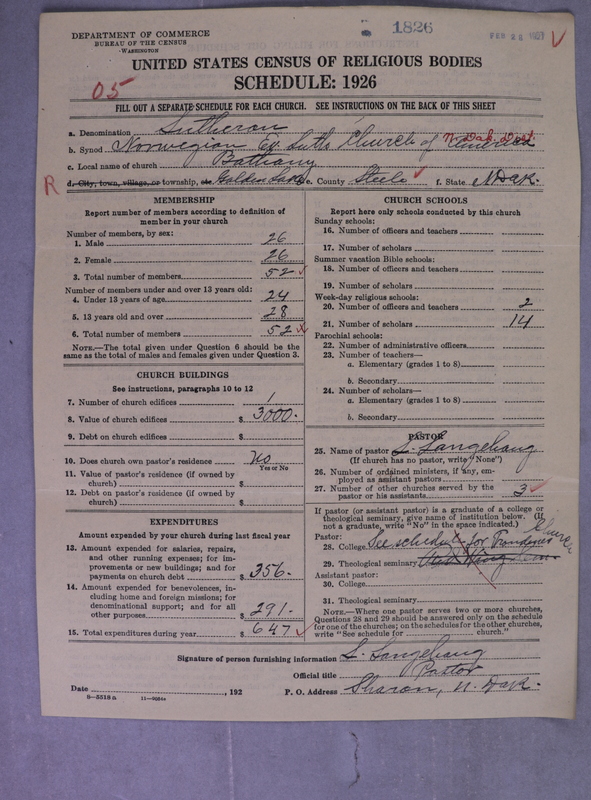 1826
FEB 28 1927
DEPARTMENT OF COMMERCE
BUREAU OF THE CENSUS
WASHINGTON
UNITED STATES CENSUS OF RELIGIOUS BODIES
SCHEDULE: 1926
05
FILL OUT A SEPARATE SCHEDULE FOR EACH CHURCH. SEE INSTRUCTIONS ON THE BACK OF THIS SHEET
a. Denomination Lutheran
b. Synod Norwegian Ev. Luth. Church of America N. Dak. Dist.
c. Local name of church Bethany
R d. City, town, village, or township, etc. Golden Lake e. County Steele f. State N Dak.
MEMBERSHIP
Report number of members according to definition of member in your church
Number of members, by sex:
1. Male 26
2. Female 26
3. Total number of members 52
Number of members under and over 13 years old:
4. Under 13 years of age 24
5. 13 years old and over 28
6. Total number of members 52
NOTE.—The total given under Question 6 should be the same as the total of males and females given under Question 3.
CHURCH BUILDINGS
See instructions, paragraphs 10 to 12
7. Number of church edifices 1
8. Value of church edifices $ 3000.
9. Debt on church edifices $
10. Does church own pastor's residence No
Yes or No
11. Value of pastor's residence (if owned by church) $
12. Debt on pastor's residence (if owned by church) $
EXPENDITURES
Amount expended by your church during last fiscal year
13. Amount expended for salaries, repairs, and other running expenses; for improvements or new buildings; and for payments on church debt $ 356.
14. Amount expended for benevolences, including home and foreign missions; for denominational support; and for all other purposes $ 291.
15. Total expenditures during year $ 647
CHURCH SCHOOLS
Report here only schools conducted by this church
Sunday schools:
16. Number of officers and teachers
17. Number of scholars
Summer vacation Bible schools:
18. Number of officers and teachers
19. Number of scholars
Week-day religious schools:
20. Number of officers and teachers 2
21. Number of scholars 14
Parochial schools:
22. Number of administrative officers
23. Number of teachers—
a. Elementary (grades 1 to 8)
b. Secondary
24. Number of scholars—
a. Elementary (grades 1 to 8)
b. Secondary
PASTOR
25. Name of pastor S. Langehaug
(If church has no pastor, write "None")
26. Number of ordained ministers, if any, employed as assistant pastors
27. Number of other churches served by the pastor or his assistants 3
If pastor (or assistant pastor) is a graduate of a college or theological seminary, give name of institution below. (If not a graduate, write "No" in the space indicated.)
Pastor:
28. College See schedule for Church
29. Theological seminary Red Wing Sem.
Assistant pastor:
30. College
31. Theological seminary
NOTE.—Where one pastor serves two or more churches, Questions 28 and 29 should be answered only on the schedule for one of the churches; on the schedules for the other churches, write "See schedule for church."
Signature of person furnishing information S. Langehaug
Official title Pastor
Date , 192 P. O. Address Sharon, N. Dak.